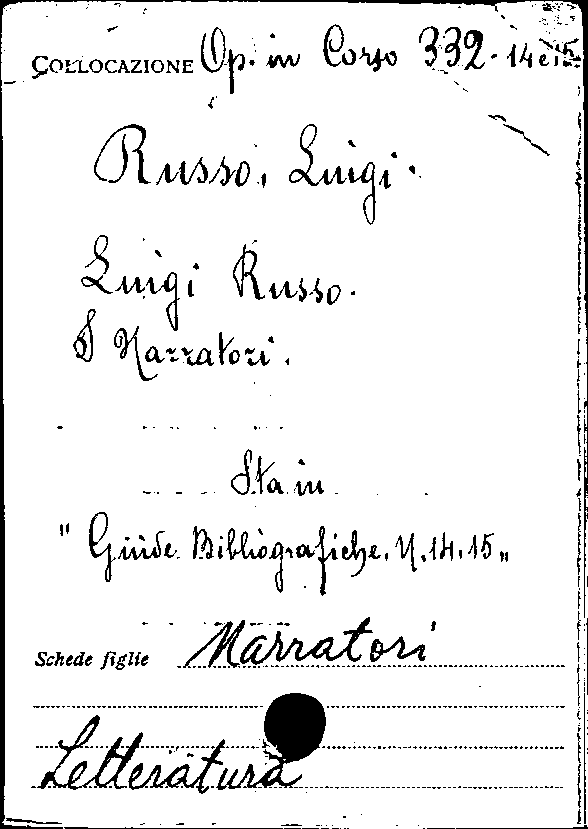 COLLOCAZIONE Op. in Corso 332. 14 e 15.
Russo, Luigi.
Luigi Russo.
I Narratori.
Sta in
" Guide Bibliografiche. N. 14. 15 "
Schede figlie Narratori
Letteratura